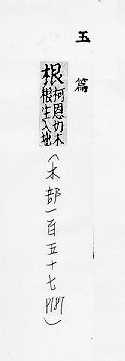 玉篇
根 柯恩切木
根生入地
(木部一百五十七)